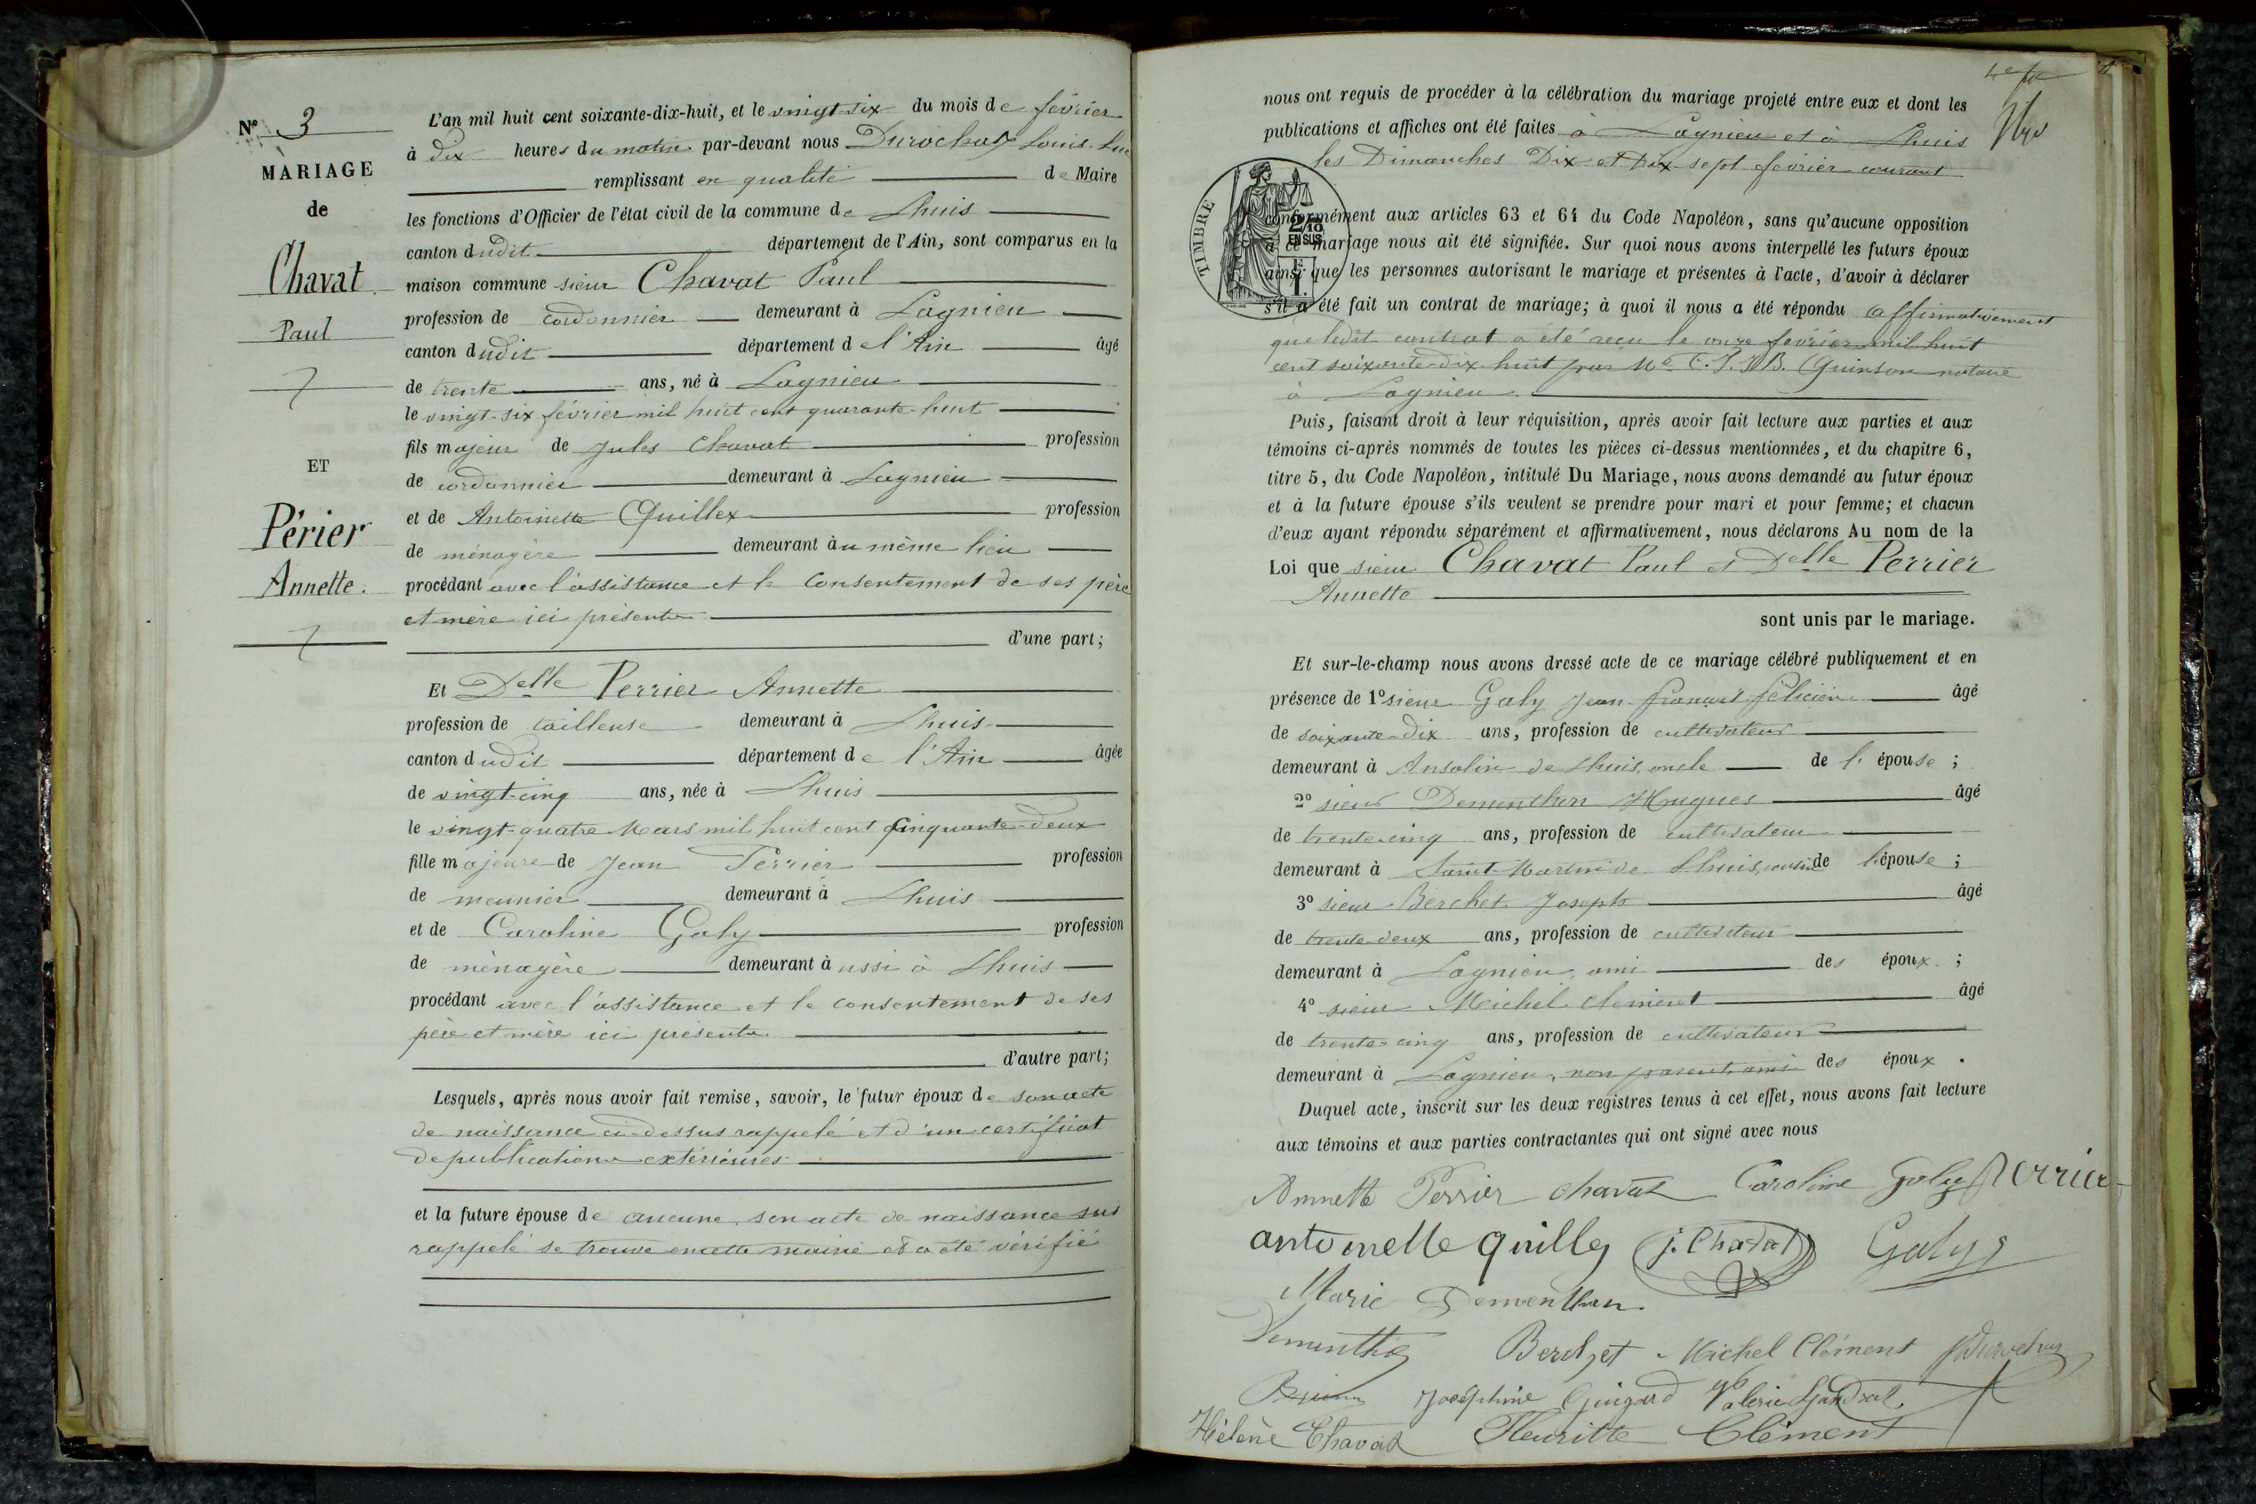 N° 3
MARIAGE
de
Chavat
Paul
ET
Périer
Annette.
L'an mil huit cent soixante-dix-huit, et le vingt six du mois de février
à dix heures du matin par-devant nous Durochat Louis Luc
remplissant en qualité de Maire
les fonctions d'Officier de l'état civil de la commune de Lhuis
canton dudit département de l'Ain, sont comparus en la
maison commune sieur Chavat Paul
profession de cordonnier demeurant à Lagnieu
canton dudit département de l'Ain âgé
de trente ans, né à Lagnieu
le vingt-six février mil huit cent quarante-huit
fils majeur de Jules Chavat profession
de cordonnier demeurant à Lagnieu
et de Antoinette Quillex profession
de ménagère demeurant au même lieu
procédant avec l'assistance et le consentement de ses père
et mère ici présents
d'une part;
Et Delle Perrier Annette
profession de tailleuse demeurant à Lhuis
canton dudit département de l'Ain âgée
de vingt-cinq ans, née à Lhuis
le vingt-quatre Mars mil huit cent cinquante-deux
fille majeure de Jean Perrier profession
de meunier demeurant à Lhuis
et de Caroline Galy profession
de ménagère demeurant aussi à Lhuis
procédant avec l'assistance et le consentement de ses
père et mère ici présents
d'autre part;
Lesquels, après nous avoir fait remise, savoir, le futur époux de son acte
de naissance ci-dessus rappelé et d'un certificat
de publications extérieures
et la future épouse de aucune, son acte de naissance sus
rappelé se trouve en cette mairie et a été vérifié
nous ont requis de procéder à la célébration du mariage projeté entre eux et dont les
publications et affiches ont été faites à Lagnieu et à Lhuis
les Dimanches Dix et Dix-sept février courant
TIMBRE
2/10
EN SUS
conformément aux articles 63 et 64 du Code Napoléon, sans qu'aucune opposition
à ce mariage nous ait été signifiée. Sur quoi nous avons interpellé les futurs époux
ainsi que les personnes autorisant le mariage et présentes à l'acte, d'avoir à déclarer
s'il a été fait un contrat de mariage; à quoi il nous a été répondu affirmativement
que ledit contrat a été reçu le onze février mil huit
cent soixante-dix-huit par Me C. J. B. Quinson notaire
à Lagnieu.
Puis, faisant droit à leur réquisition, après avoir fait lecture aux parties et aux
témoins ci-après nommés de toutes les pièces ci-dessus mentionnées, et du chapitre 6,
titre 5, du Code Napoléon, intitulé Du Mariage, nous avons demandé au futur époux
et à la future épouse s'ils veulent se prendre pour mari et pour femme; et chacun
d'eux ayant répondu séparément et affirmativement, nous déclarons Au nom de la
Loi que sieur Chavat Paul et Delle Perrier
Annette
sont unis par le mariage.
Et sur-le-champ nous avons dressé acte de ce mariage célébré publiquement et en
présence de 1° sieur Galy Jean félicien âgé
de soixante-dix ans, profession de cultivateur
demeurant à Ansolin de Lhuis, oncle de l'épouse;
2° sieur Dementhon Hugues âgé
de trente-cinq ans, profession de cultivateur
demeurant à Saint-Martin de Lhuis, cousin de l'épouse;
3° sieur Berchet Joseph âgé
de trente-deux ans, profession de cultivateur
demeurant à Lagnieu, ami des époux;
4° sieur Michel Clément âgé
de trente-cinq ans, profession de cultivateur
demeurant à Lagnieu, non parent ami des époux.
Duquel acte, inscrit sur les deux registres tenus à cet effet, nous avons fait lecture
aux témoins et aux parties contractantes qui ont signé avec nous
Annette Perrier chavat Caroline Galy Perrier
antoinelle quilley j. Chavat Galy
Marie Dementhon
Berchet Michel Clément Durochat
Joséphine Guigard
Hélène Chavat Fleuritte Clément